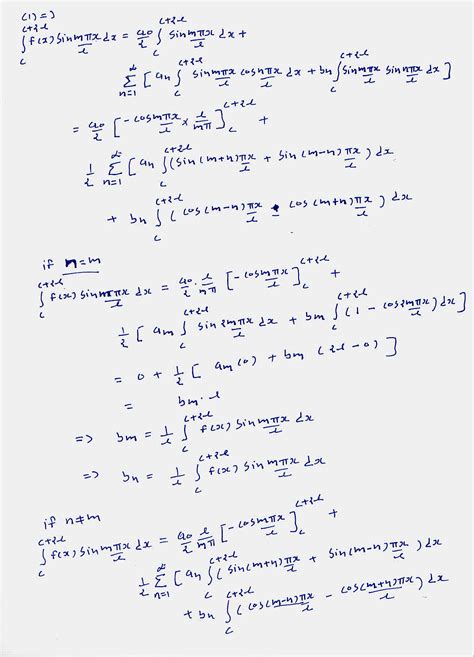 (1) ⇒
∫_c^{c+2l} f(x) sin mπx/l dx = a0/2 ∫_c^{c+2l} sin mπx/l dx +
∑_{n=1}^∞ [an ∫_c^{c+2l} sin mπx/l cos nπx/l dx + bn ∫_c^{c+2l} sin mπx/l sin nπx/l dx]
= a0/2 [-cos mπx/l × l/mπ]_c^{c+2l} +
1/2 ∑_{n=1}^∞ [an ∫_c^{c+2l} (sin(m+n)πx/l + sin(m-n)πx/l) dx
+ bn ∫_c^{c+2l} (cos(m-n)πx/l - cos(m+n)πx/l) dx
if n=m
∫_c^{c+2l} f(x) sin mπx/l dx = a0/2 · l/mπ [-cos mπx/l]_c^{c+2l} +
1/2 [am ∫_c^{c+2l} sin 2mπx/l dx + bm ∫_c^{c+2l} (1 - cos 2mπx/l) dx]
= 0 + 1/2 [am(0) + bm (2l-0)]
= bm·l
⇒ bm = 1/l ∫_c^{c+2l} f(x) sin mπx/l dx
⇒ bn = 1/l ∫_c^{c+2l} f(x) sin mπx/l dx
if n≠m
∫_c^{c+2l} f(x) sin mπx/l dx = a0/2 l/mπ [-cos mπx/l]_c^{c+2l} +
1/2 ∑_{n=1}^∞ [an ∫_c^{c+2l} (sin(m+n)πx/l + sin(m-n)πx/l) dx
+ bn ∫_c^{c+2l} (cos(m-n)πx/l - cos(m+n)πx/l) dx